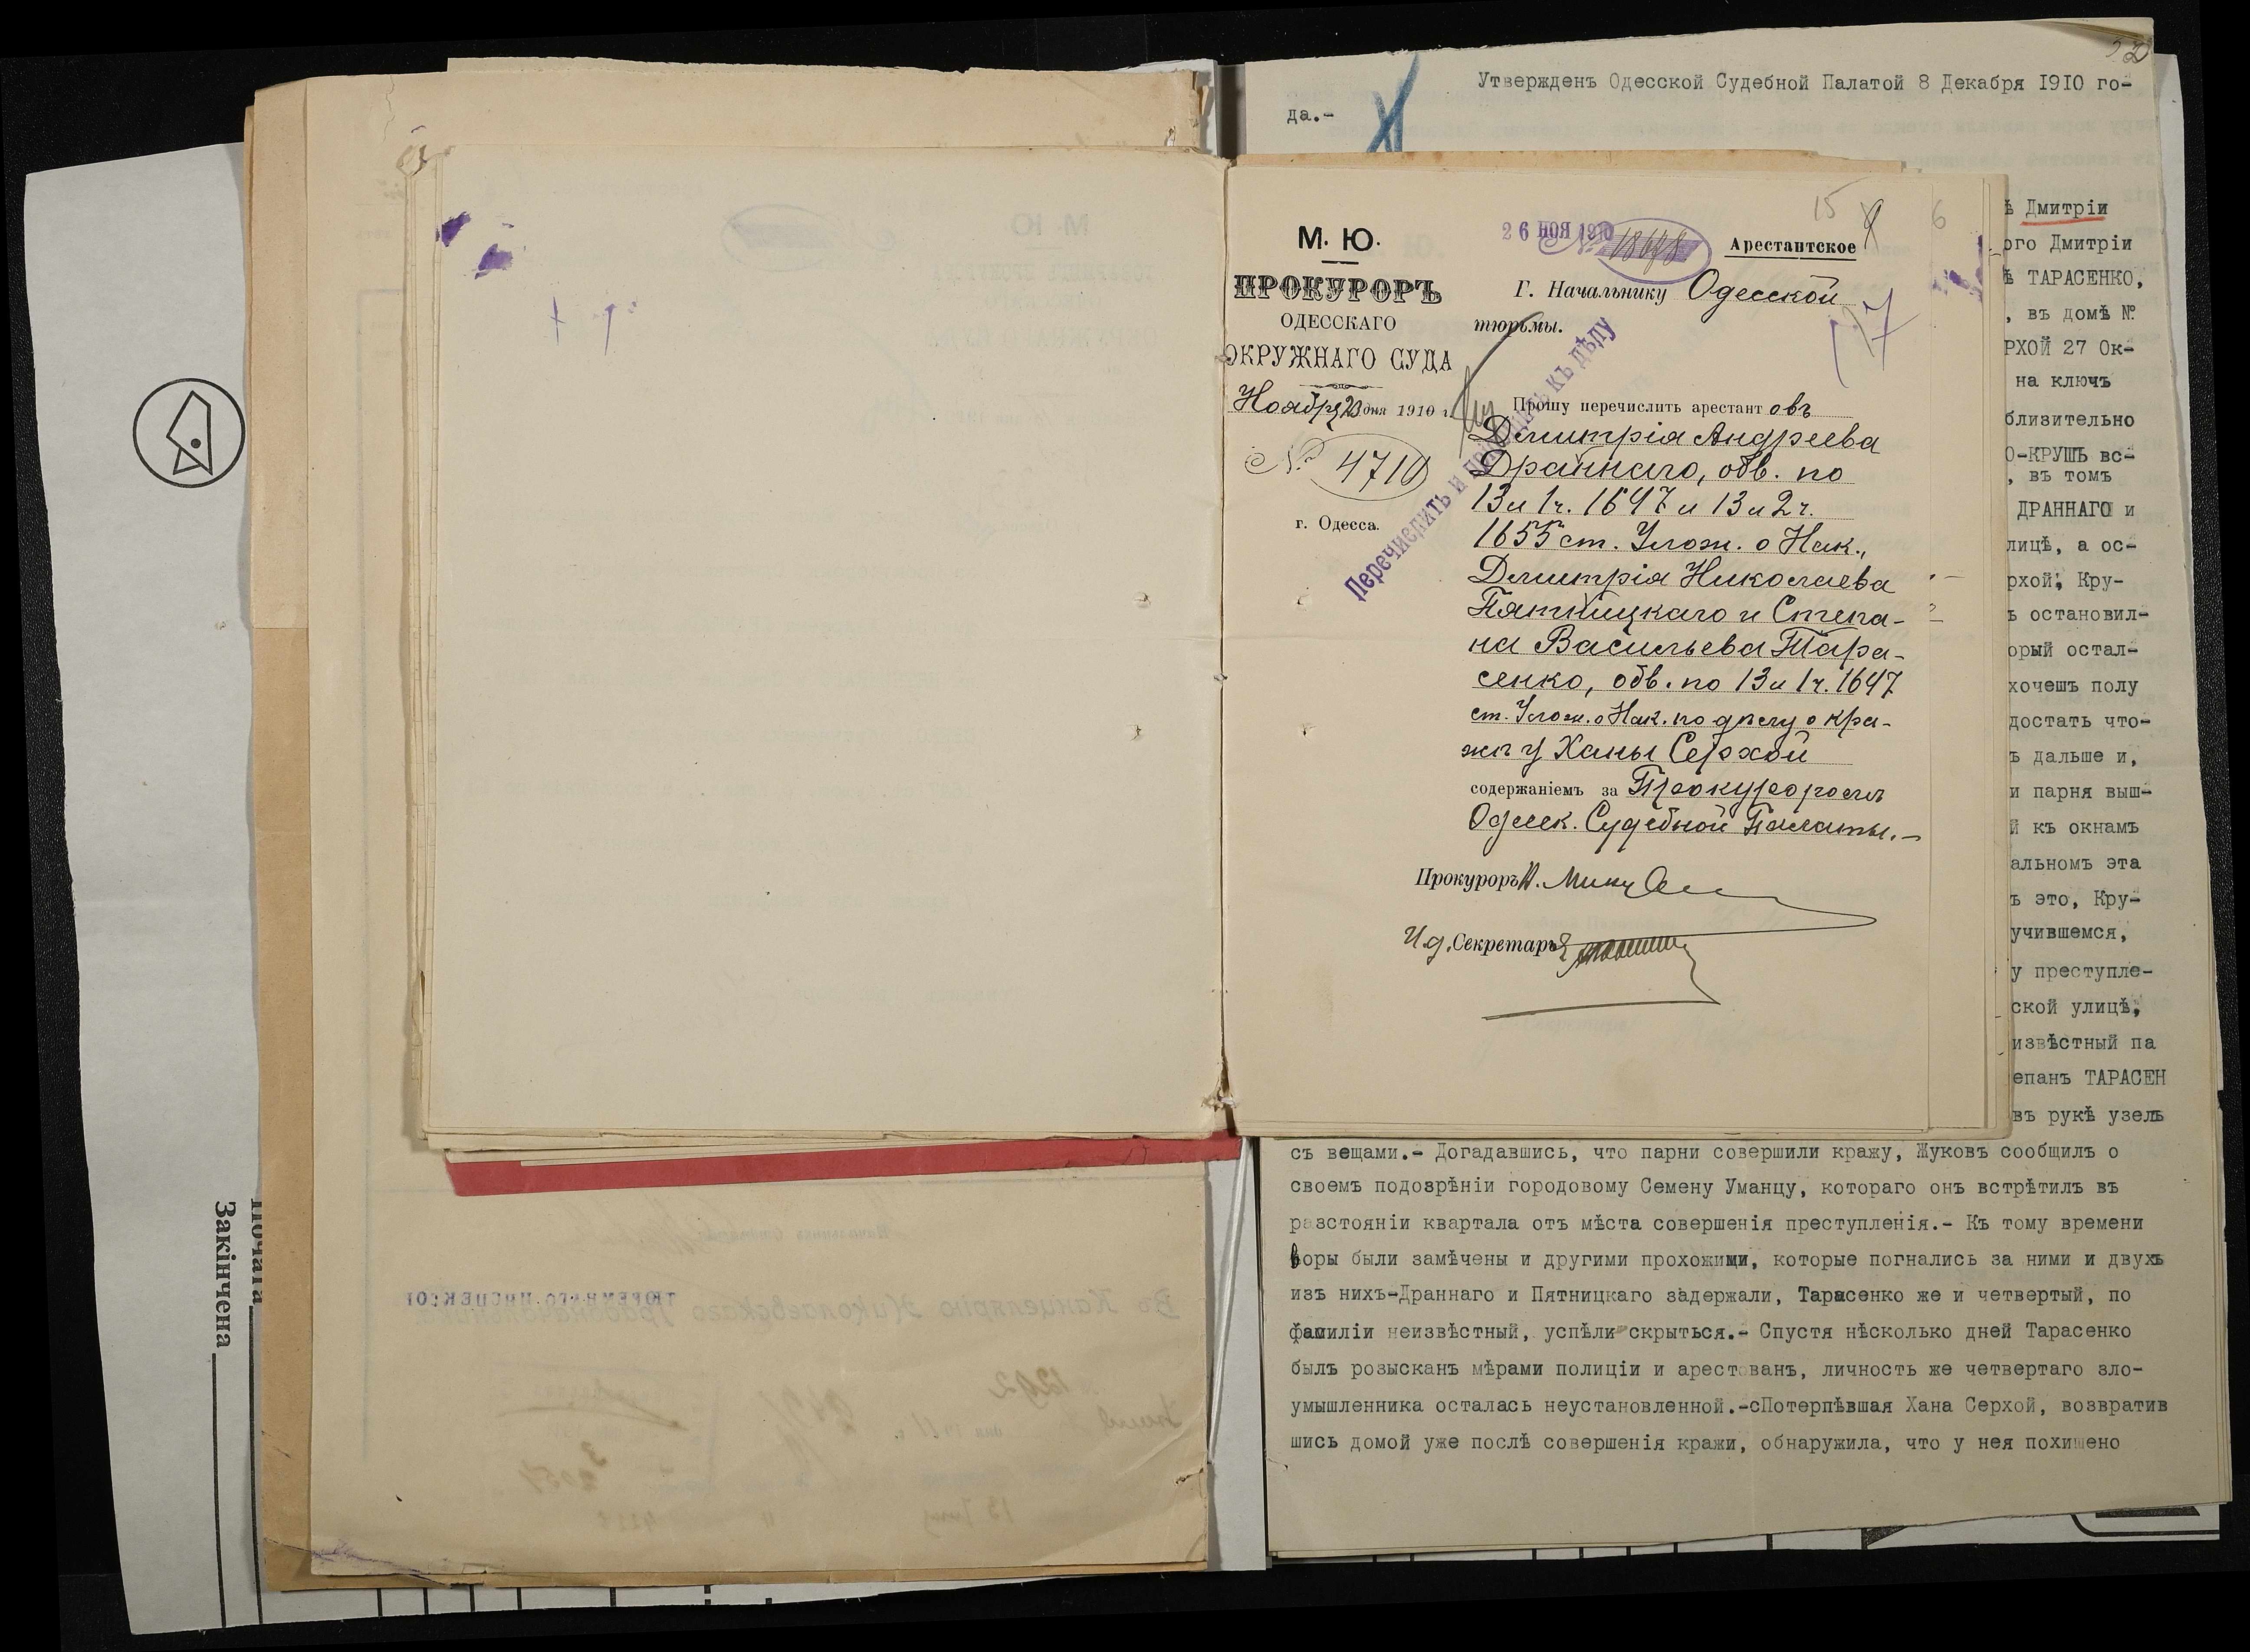 Утвержденъ Одесской Судебной Палатой 8 Декабря 1910 го-
да.-
М. Ю.
ПРОКУРОРЪ
ОДЕССКАГО
ОКРУЖНАГО СУДА
Ноября 23 дня 1910 г.
№ 4710
г. Одесса.
26 НОЯ 1910
№ 18678
15
Арестантское
Г. Начальнику Одесской
тюрьмы.
17
Перечислить и пріобщить къ дѣлу
Прошу перечислить арестантовъ
Дмитрія Андреева
Драннаго, обв. по
13 и 1 ч. 1647 и 13 и 2 ч.
1655 ст. Улож. о Нак.,
Дмитрія Николаева
Пятницкаго и Степа-
на Васильева Тара-
сенко, обв. по 13 и 1 ч. 1647
ст. Улож. о Нак. по дѣлу о кра-
жѣ у Ханы Серхой
содержаніемъ за Прокуроромъ
Одесск. Судебной Палаты.-
Прокуроръ
И.д. Секретарь
6
ѣ Дмитріи
ого Дмитріи
ѣ ТАРАСЕНКО,
, въ домѣ №
РХОЙ 27 Ок-
на ключъ
близительно
О-КРУШЪ вс-
, въ томъ
ДРАННАГО и
лицѣ, а ос-
рхой, Кру-
ъ остановил-
орый остал-
хочешъ полу
достать что-
ъ дальше и,
и парня выш-
й къ окнамъ
альномъ эта
ъ это, Кру-
учившемся,
у преступле-
ской улицѣ,
извѣстный па
епанъ ТАРАСЕН
въ рукѣ узелъ
съ вещами.- Догадавшись, что парни совершили кражу, Жуковъ сообщилъ о
своемъ подозрѣніи городовому Семену Уманцу, котораго онъ встрѣтилъ въ
разстояніи квартала отъ мѣста совершенія преступленія.- Къ тому времени
воры были замѣчены и другими прохожими, которые погнались за ними и двухъ
изъ нихъ-Драннаго и Пятницкаго задержали, Тарасенко же и четвертый, по
фамиліи неизвѣстный, успѣли скрыться.- Спустя нѣсколько дней Тарасенко
былъ розысканъ мѣрами полиціи и арестованъ, личность же четвертаго зло-
умышленника осталась неустановленной.-сПотерпѣвшая Хана Серхой, возвратив
шись домой уже послѣ совершенія кражи, обнаружила, что у нея похищено
Почата
Закінчена